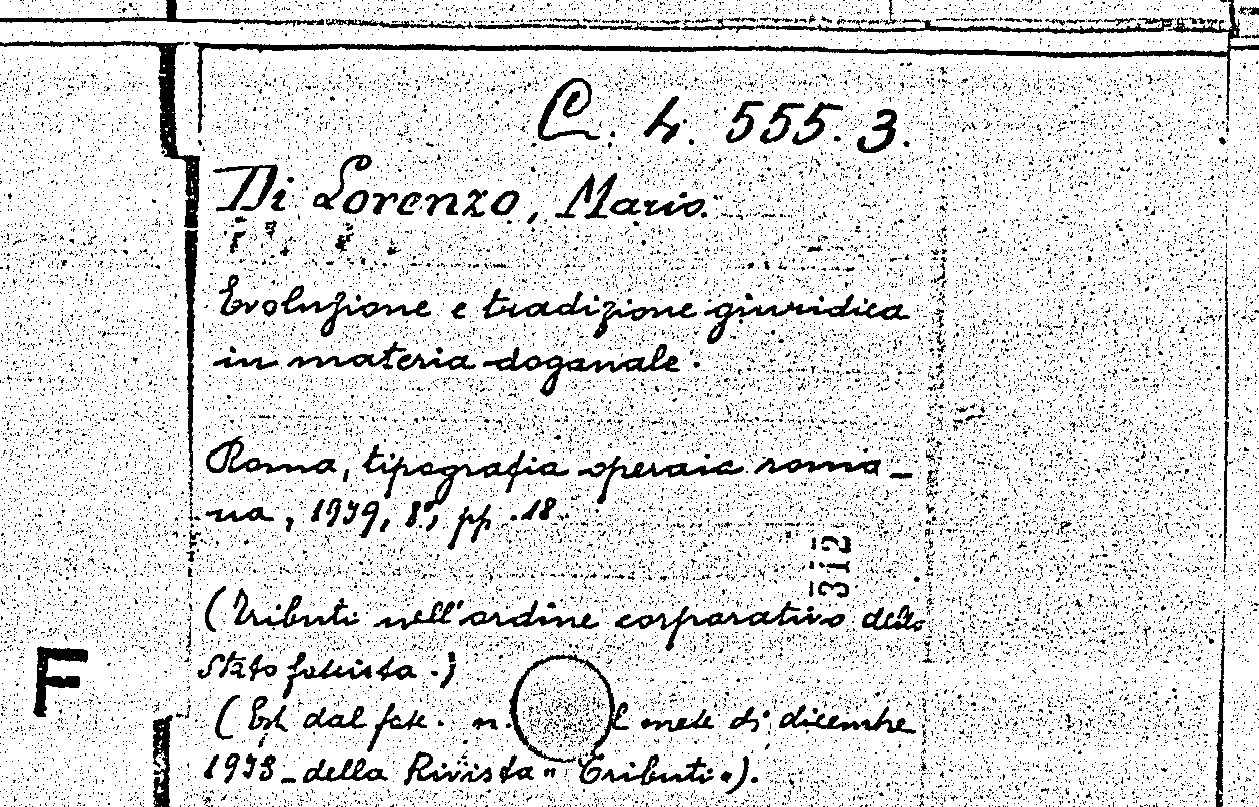 C. 4. 555. 3.
Di Lorenzo, Mario.
Evoluzione e tradizione giuridica
in materia doganale.
Roma, tipografia operaia roma-
na, 1939, 8°, pp. 18.
312
(Tributi nell'ordine corporativo dello
stato fascista.)
F
(Est. dal fasc. n. l mese di dicembre
1938 - della Rivista "Tributi").